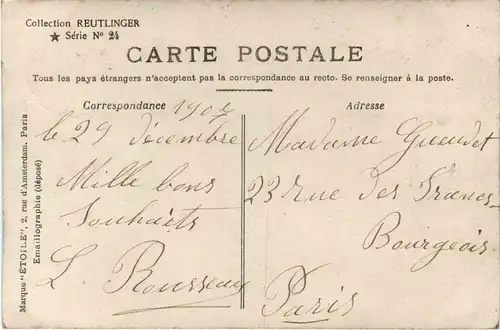 Collection REUTLINGER
★ Série Nº 24
CARTE POSTALE
Tous les pays étrangers n'acceptent pas la correspondance au recto. Se renseigner à la poste.
Correspondance 1907
le 29 décembre
Mille bons
Souhaits
L Rousseau
Adresse
Madame Gueudet
23 rue des Francs-
Bourgeois.
Paris
Marque "ÉTOILE", 2, rue d'Amsterdam. Paris
Emaillographie (déposé)